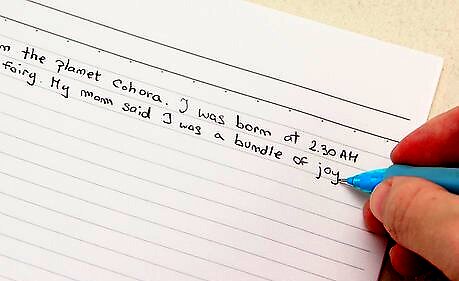 the planet Cohora. I was born at 2.30 AM
fairy. My mom said I was a bundle of joy